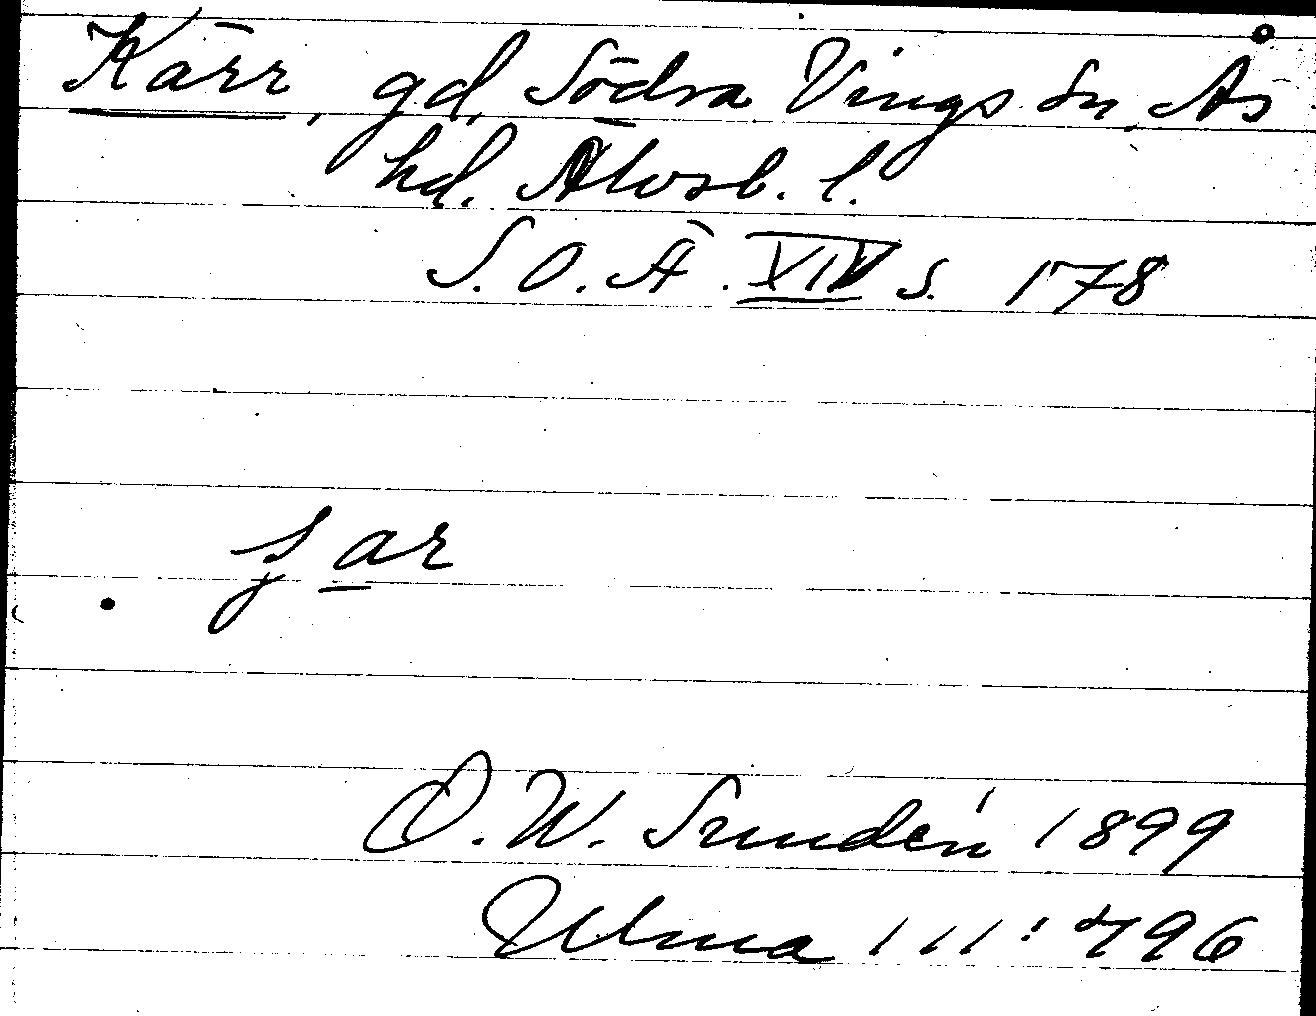 Kärr, gd, Södra Vings sn, Ås
hd. Älvsb. l.
S. O. Ä. XIV s. 178
ʃar
D. W. Sundén 1899
Ulma 111:496